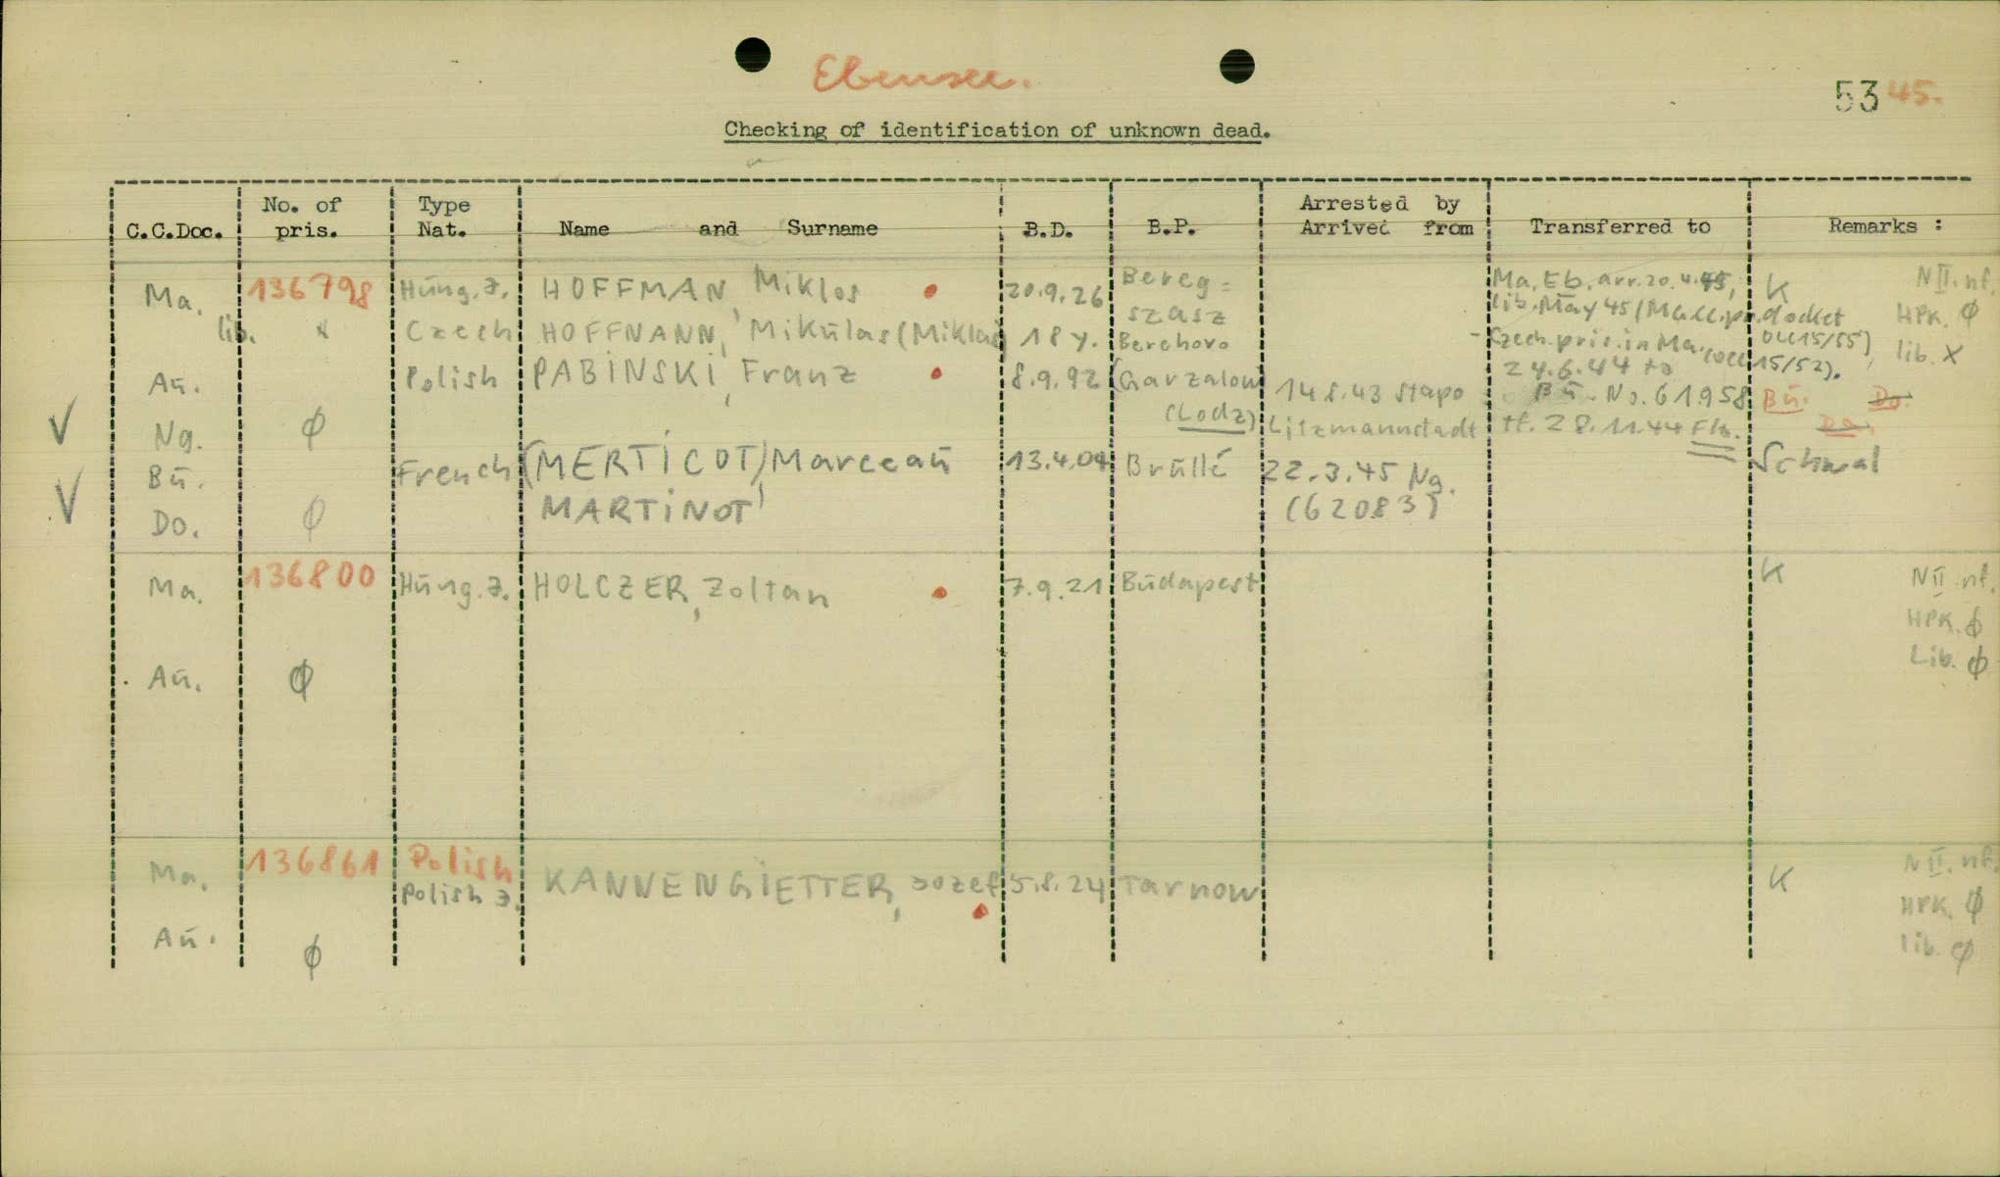 Ebensee.
53 45.
Checking of identification of unknown dead.
C.C.Doc. No. of pris. Type Nat. Name and Surname B.D. B.P. Arrested by Arrived from Transferred to Remarks :
Ma. 136798 Hung. J. HOFFMAN, Miklos 20.9.26 Bereg= szasz Ma. Eb. arr. 20.4.45, K N II. nf.
lib. May 45 (Ma cc. pr. docket HPK. Ø
lib. x Czech HOFFNANN, Mikulas (Miklas) 18 y. Berehovo - Czech. pris. in Ma. (occ 15/52). OCC 15/55) lib. X
Au. Polish PABINSKI, Franz 8.9.92 (Garzalow 14.8.43 Stapo 24.6.44 to
Bu. No. 61958 Bu. Do.
Ng. Ø (Lodz) Litzmannstadt tf. 28.11.44 Flb. Do.
Bu. French (MERTICOT) Marceau 13.4.04 Brullé 22.3.45 Ng. Schwal
Do. Ø MARTINOT (62083)
Ma. 136800 Hung. J. HOLCZER, Zoltan 7.9.21 Budapest K N II. nf.
HPK. Ø
Au. Ø Lib. Ø
Ma. 136861 Polish
Polish J. KANNENGIETTER, Jozef 5.8.24 Tarnow K N II. nf.
HPK. Ø
Au. Ø lib. Ø